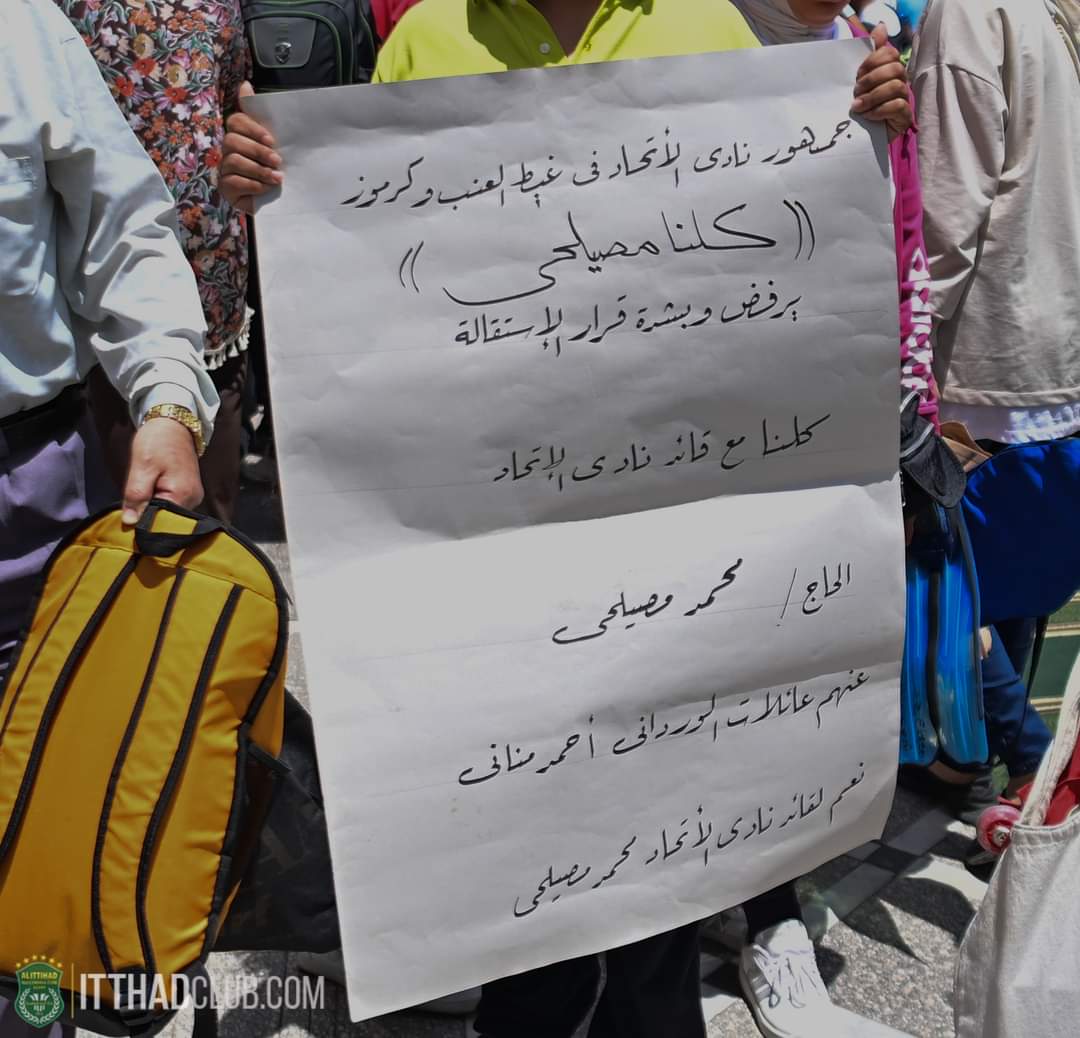 جمهور نادى الأتحاد فى غيط العنب وكرموز
(( كلنا مصيلحى ))
يرفض وبشدة قرار الإستقالة
كلنا مع قائد نادى الإتحاد
الحاج / محمد مصيلحى
عنهم عائلات الوردانى أحمد منانى
نعم لقائد نادى الأتحاد محمد مصيلحى
ALITTIHAD
ITTHADCLUB.COM